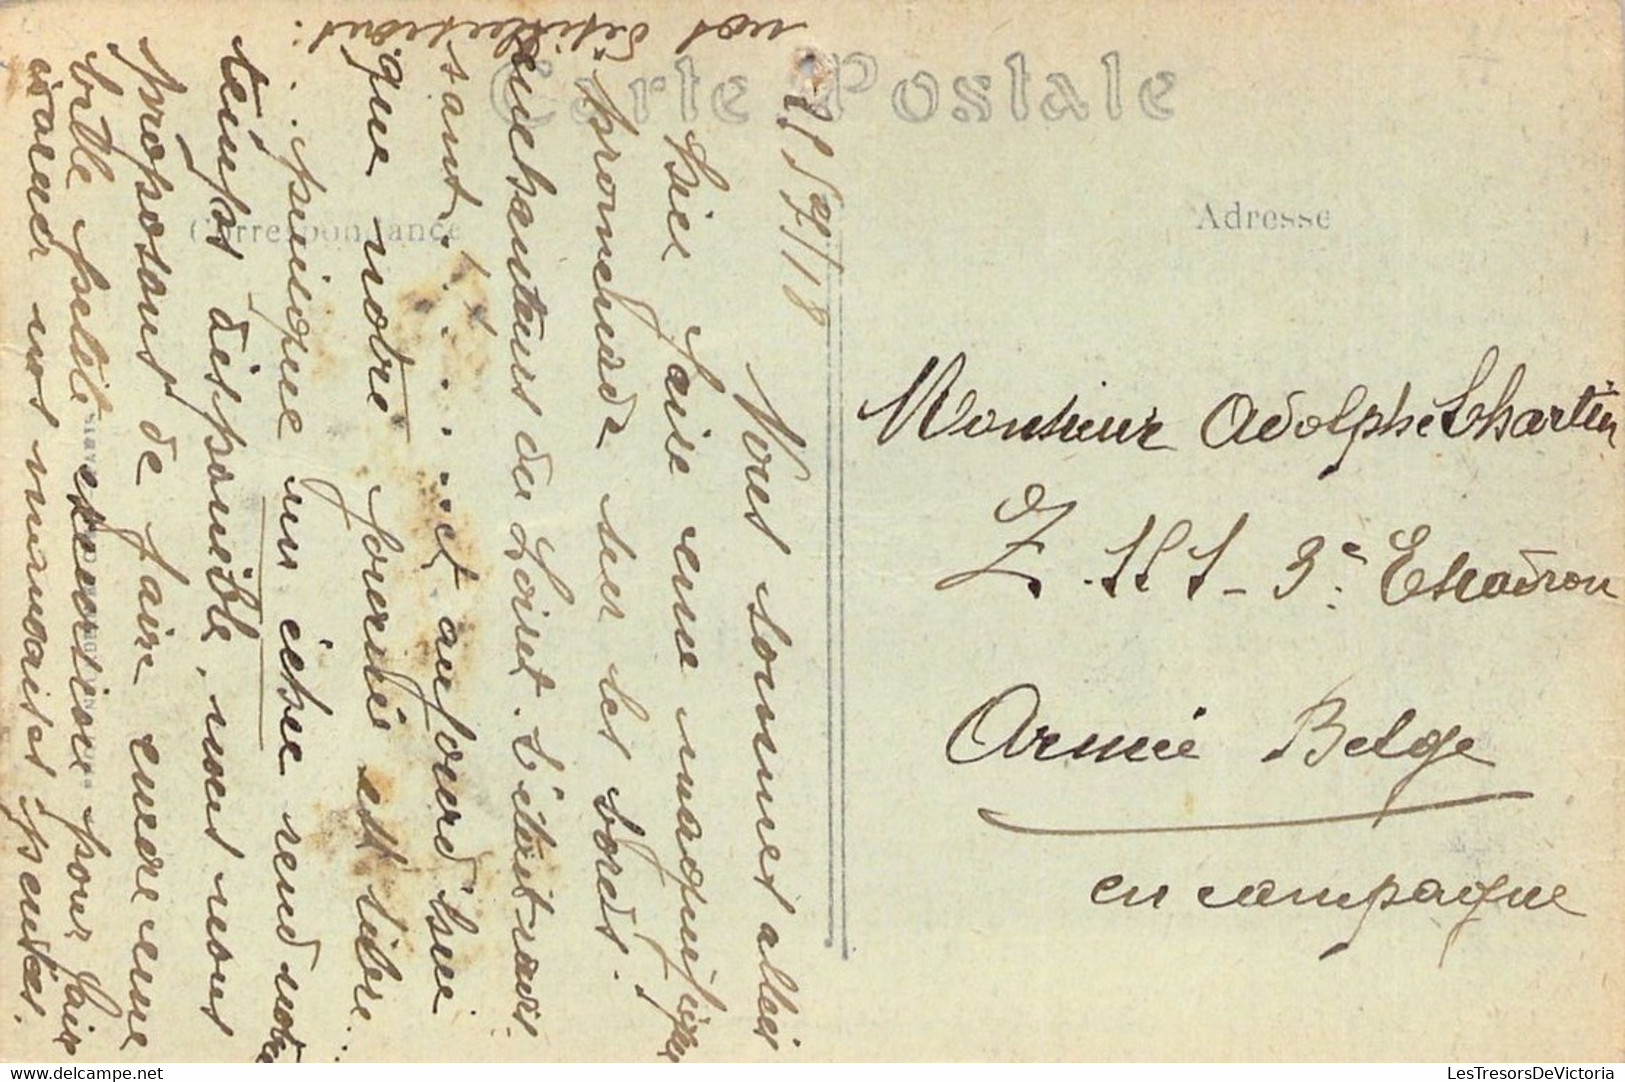 Carte Postale
Correspondance
Adresse
Nous sommes allés
hier faire une magnifique
promenade sur les bords
enchanteurs du Loiret. C'était ravis
sant . . . . . . et aujourd'hui
que notre journée est libre...
. . puisque un iche rend notre
temps disponible, nous nous
proposons de faire encore une
petite excursion pour faire
évader nos mauvaises pensées.
nos
Monsieur Adolphe Chartin
Z. 151 - 3e Escadron
Armée Belge
en campagne
LesTresorsDeVictoria
https://www.delcampe.net